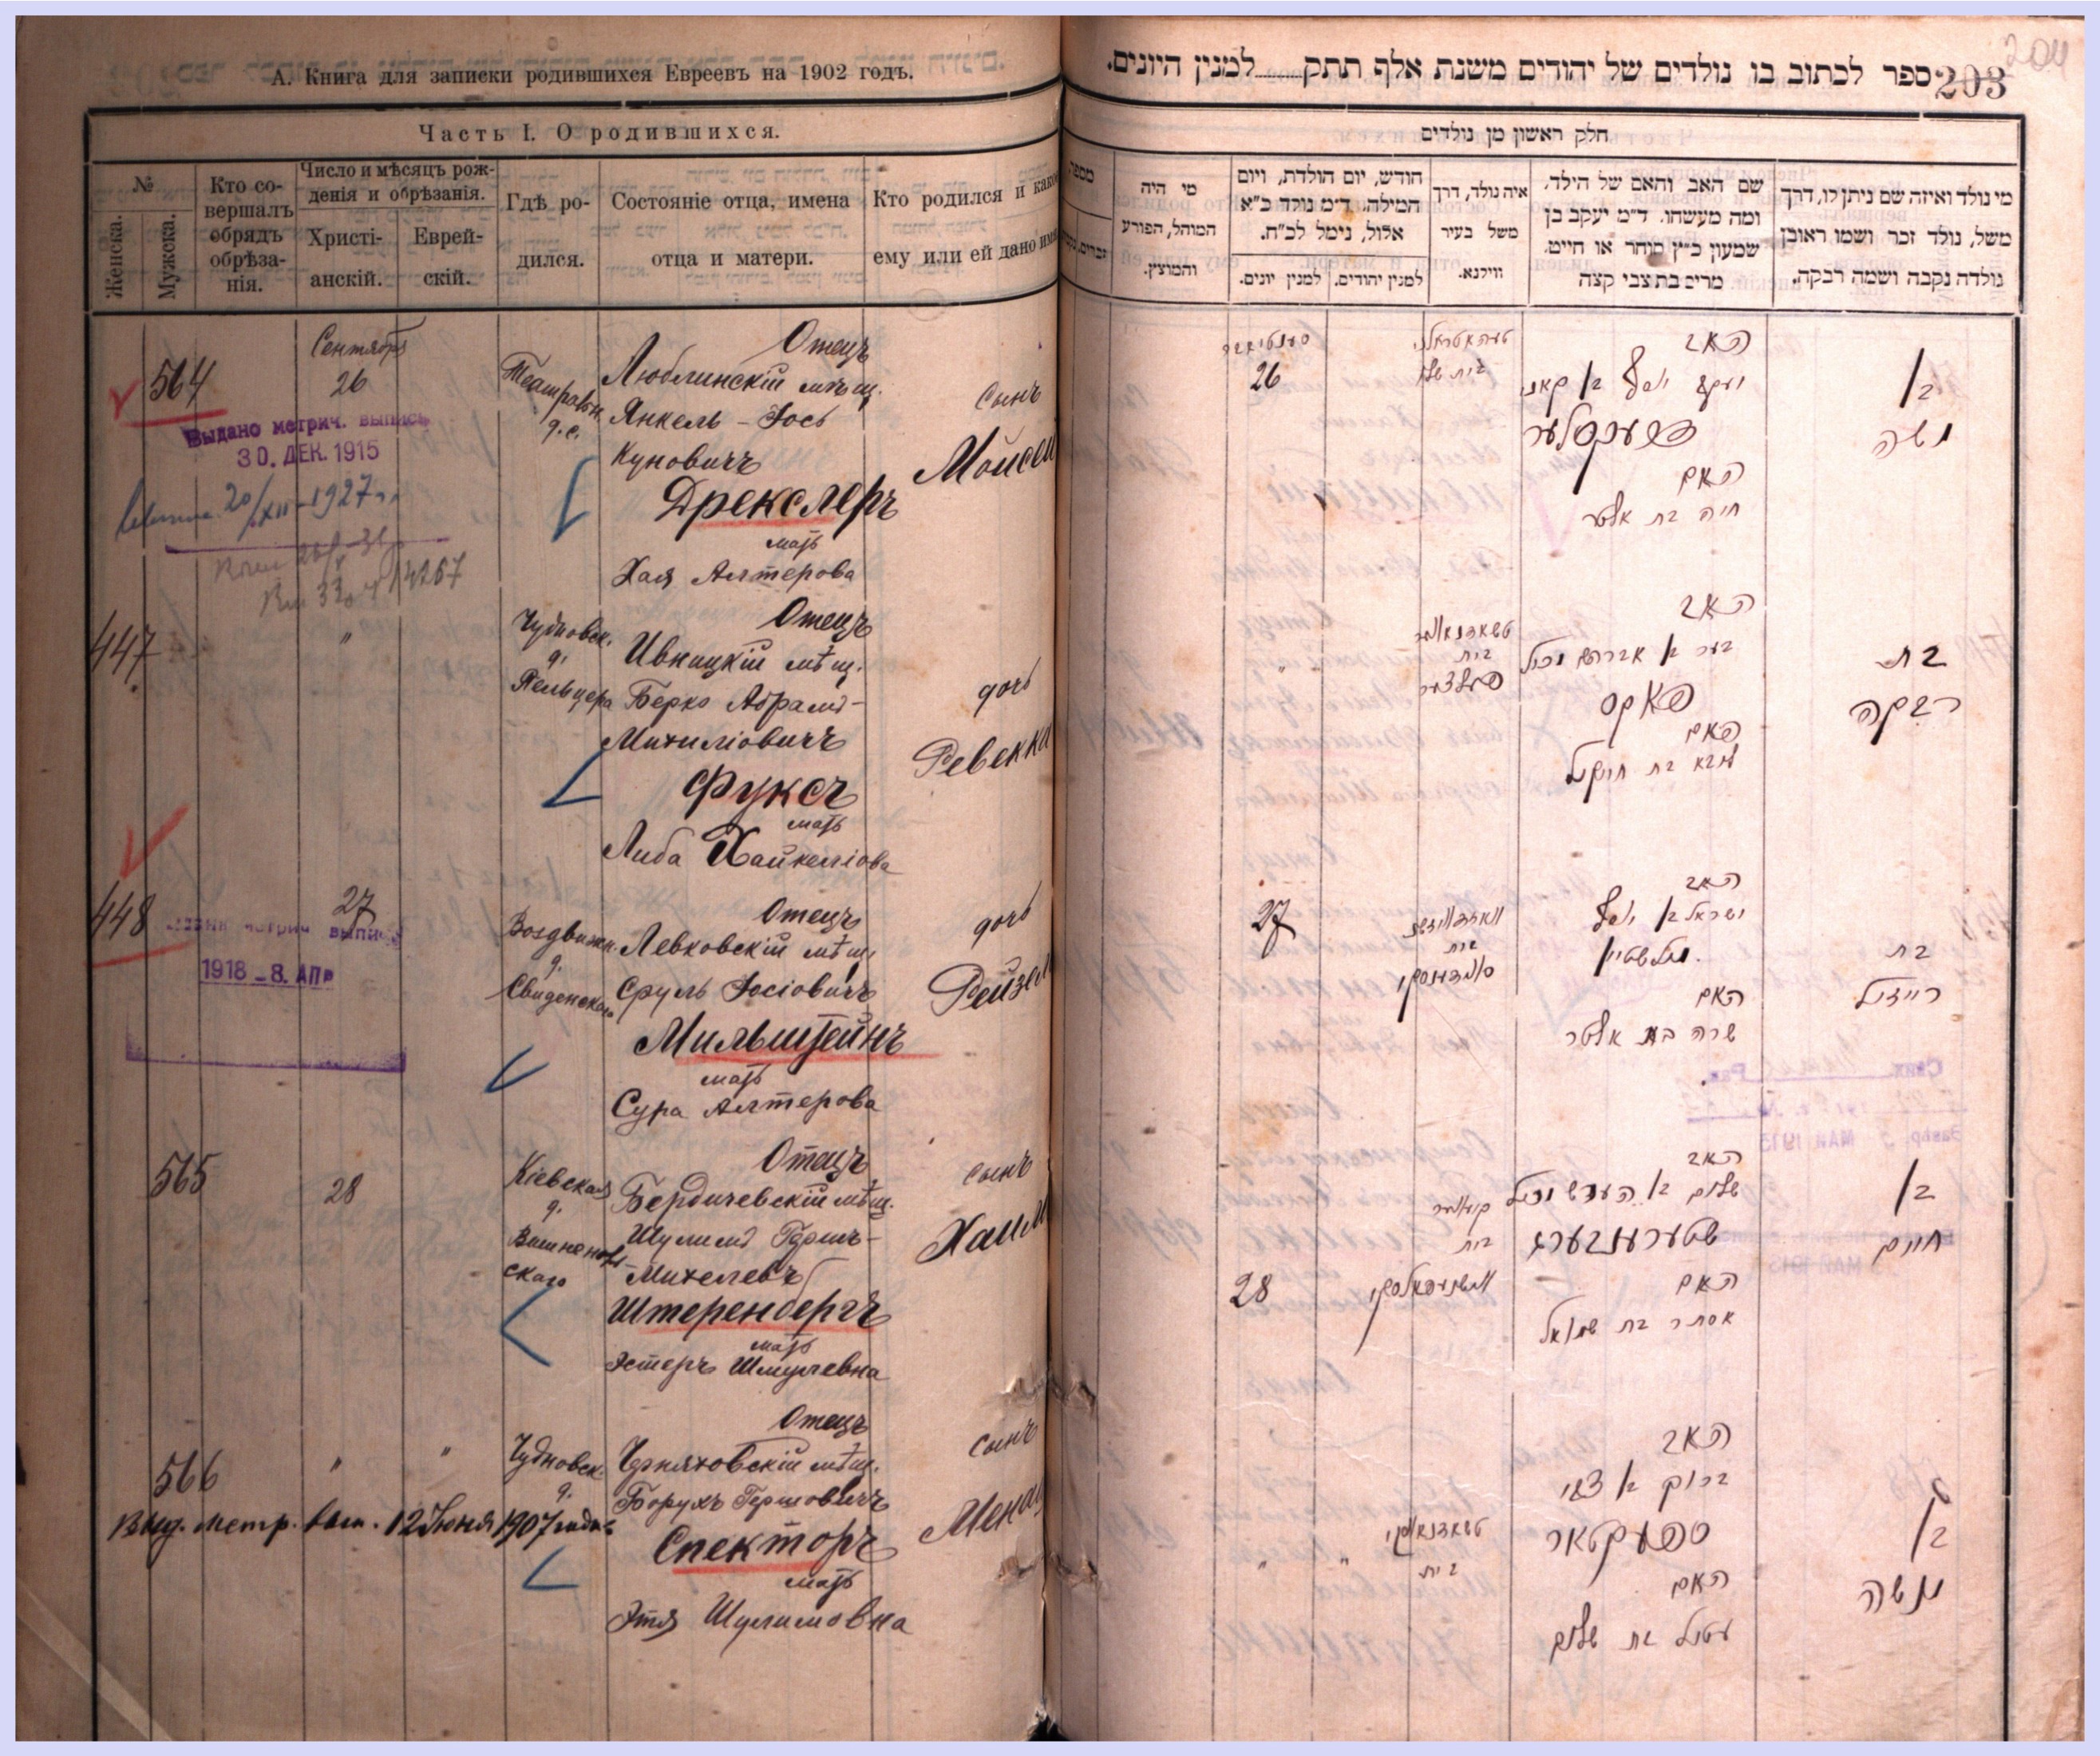 А. Книга для записки родившихся Евреевъ на 1902 годъ.
Часть I. О родившихся.
№
Женска.
Мужска.
Кто со-
вершалъ
обрядъ
обрѣза-
нія.
Число и мѣсяцъ рож-
денія и обрѣзанія.
Христі-
анскій.
Еврей-
скій.
Гдѣ ро-
дился.
Состояніе отца, имена
отца и матери.
Кто родился и како
ему или ей дано имя
564
Сентября
26
Театральн.
Отецъ
Люблинскій мѣщ.
Янкель - Іось
Куновичъ
Дрекслеръ
мать
Хая Алтерова
сынъ
Мойсей
Выдано метрич. выпись
30. ДЕК. 1915
20/XII-1927 г.
447
"
Чудновск.
д.
Пельцера
Отецъ
Ивницкій мѣщ.
Берко Абрамъ-
Михиліовичъ
Фуксъ
мать
Либа Хайкеліова
дочь
Ревекка
448
27
метрич выпись
1918 - 8. АПР
Воздвиженск.
д.
Свиденского
Отецъ
Левковскій мѣщ.
Сруль Іосіовичъ
Мильштейнъ
мать
Сура Алтерова
дочь
Рейзел
565
28
Кіевская
д.
Вишнепов-
скаго
Отецъ
Бердичевскій мѣщ.
Шулимъ Гершъ-
Михелевъ
Штеренбергъ
мать
Эстеръ Шмулевна
сынъ
Хаим
566
"
"
Чудновск.
д.
Отецъ
Черняховскій мѣщ.
Борухъ Гершовичъ
Спекторъ
мать
Этя Шулимовна
сынъ
Менаш
Выд. метр. вып. 12 Іюня 1907 года
203
204
ספר לכתוב בו נולדים של יהודים משנת אלף תתק למנין היונים.
חלק ראשון מן נולדים
מי נולד ואיזה שם ניתן לו, דרך
משל, נולד זכר ושמו ראובן
נולדה נקבה ושמה רבקה.
שם האב והאם של הילד,
ומה מעשהו. ד״מ יעקב בן
שמעון כ״ץ סוחר או חייט.
מרים בת צבי קצה
איה נולד, דרך
משל בעיר
ווילנא.
חודש, יום הולדת, ויום
המילה. ד״מ נולד כ״א
אלול, נימל לכ״ח.
למנין יהודים.
למנין יונים.
מי היה
המוהל, הפורע
והמוצץ.
מספר
26
האב
יעקב יוסף בן קאני
דרעקסלער
האם
חיה בת אלטר
בן
משה
"
בית
פעלצער
האב
בער בן אברהם מיכל
פאקס
האם
ליבא בת חייקיל
בת
רבקה
27
בית
האב
ישראל בן יוסף
מילשטיין
האם
שרה בת אלטר
בת
רייזיל
28
בית
האב
שלום בן הערש מיכל
שטערענבערג
האם
אסתר בת שמואל
בן
חיים
"
"
בית
האב
ברוך בן צבי
ספעקטאר
האם
עטיל בת שלום
בן
מנשה